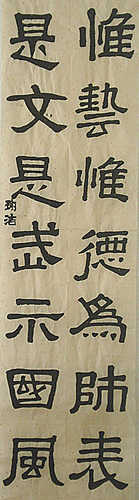 惟藝惟德為師表
是文是武示國風